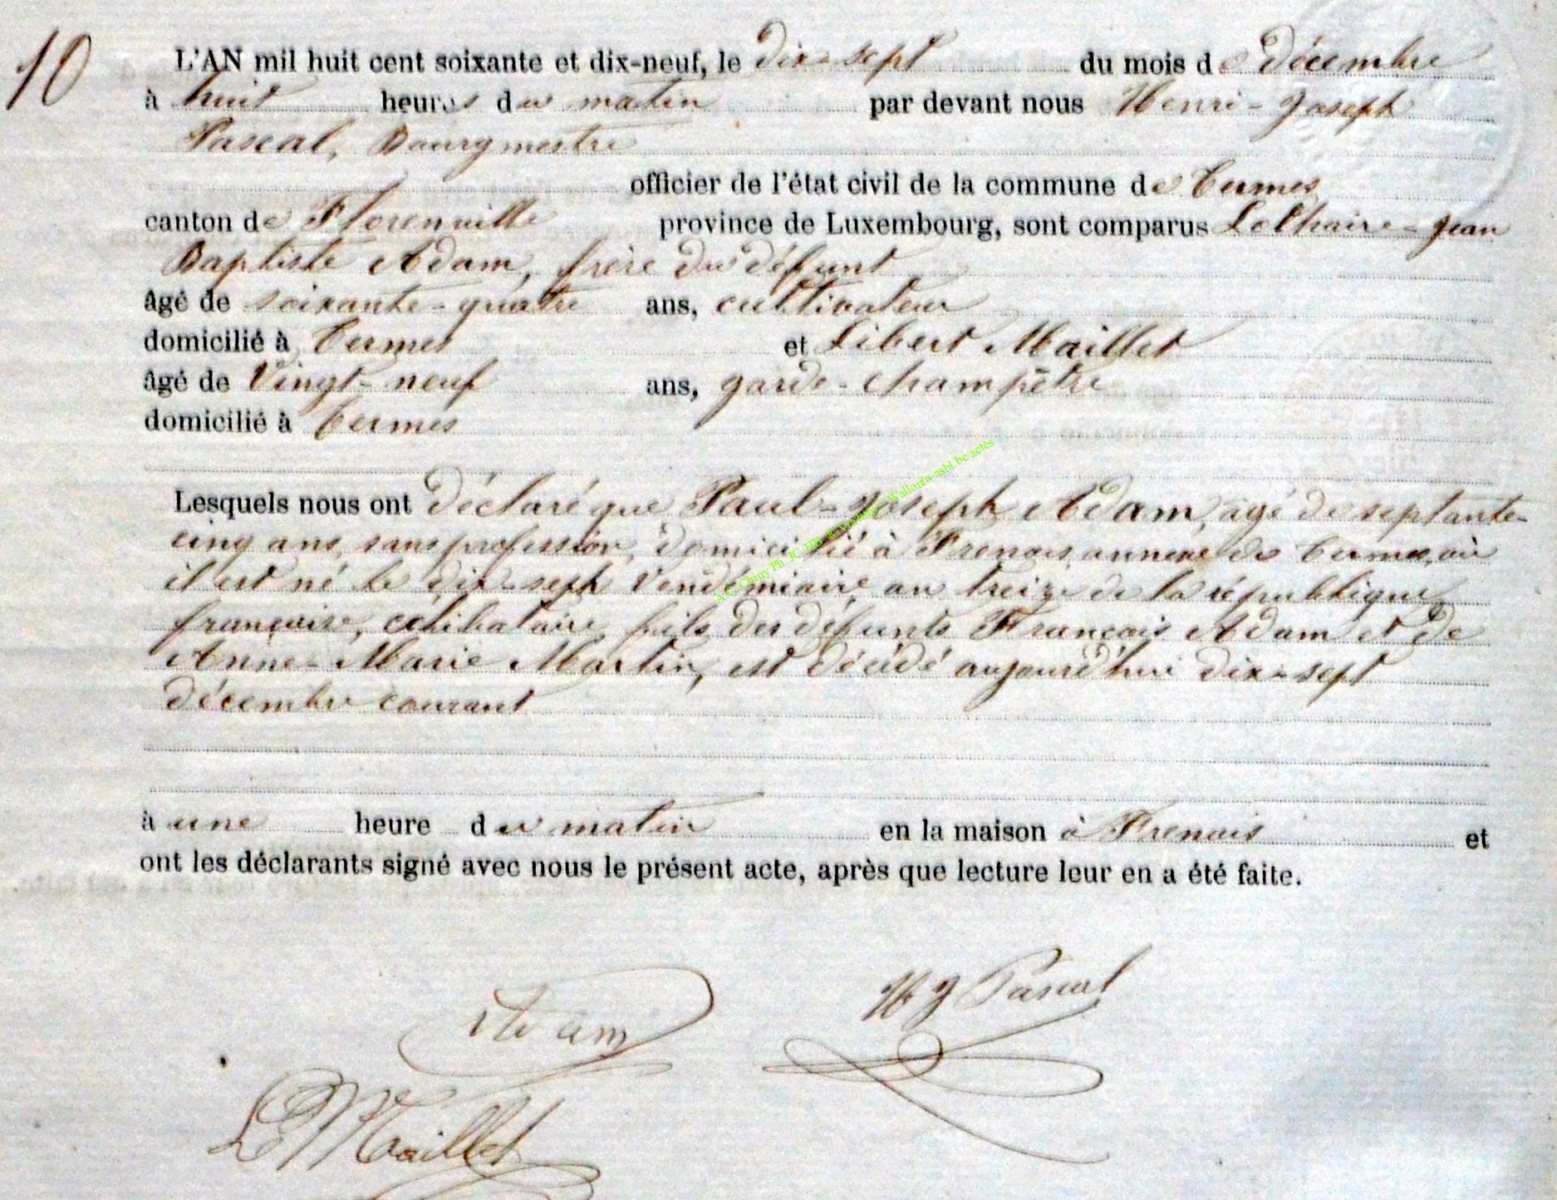 10
L'AN mil huit cent soixante et dix-neuf, le dix-sept du mois de décembre
à huit heures du matin par devant nous Henri-Joseph
Pascal, Bourgmestre
officier de l'état civil de la commune de Termes
canton de Florenville province de Luxembourg, sont comparus Lothaire-Jean
Baptiste Adam, frère du défunt
âgé de soixante-quatre ans, cultivateur
domicilié à Termes et Libert Maillet
âgé de Vingt-neuf ans, garde-champêtre
domicilié à Termes
Lesquels nous ont déclaré que Paul-Joseph Adam, âgé de septante-
cinq ans, sans profession, domicilié à Frenois, annexe de Termes, où
il est né le dix-sept Vendémiaire an treize de la république
française, célibataire, fils des défunts François Adam et de
Anne-Marie Martin, est décédé aujourd'hui dix-sept
décembre courant
à une heure du matin en la maison à Frenois et
ont les déclarants signé avec nous le présent acte, après que lecture leur en a été faite.
Adam
HJ Pascal
L Maillet